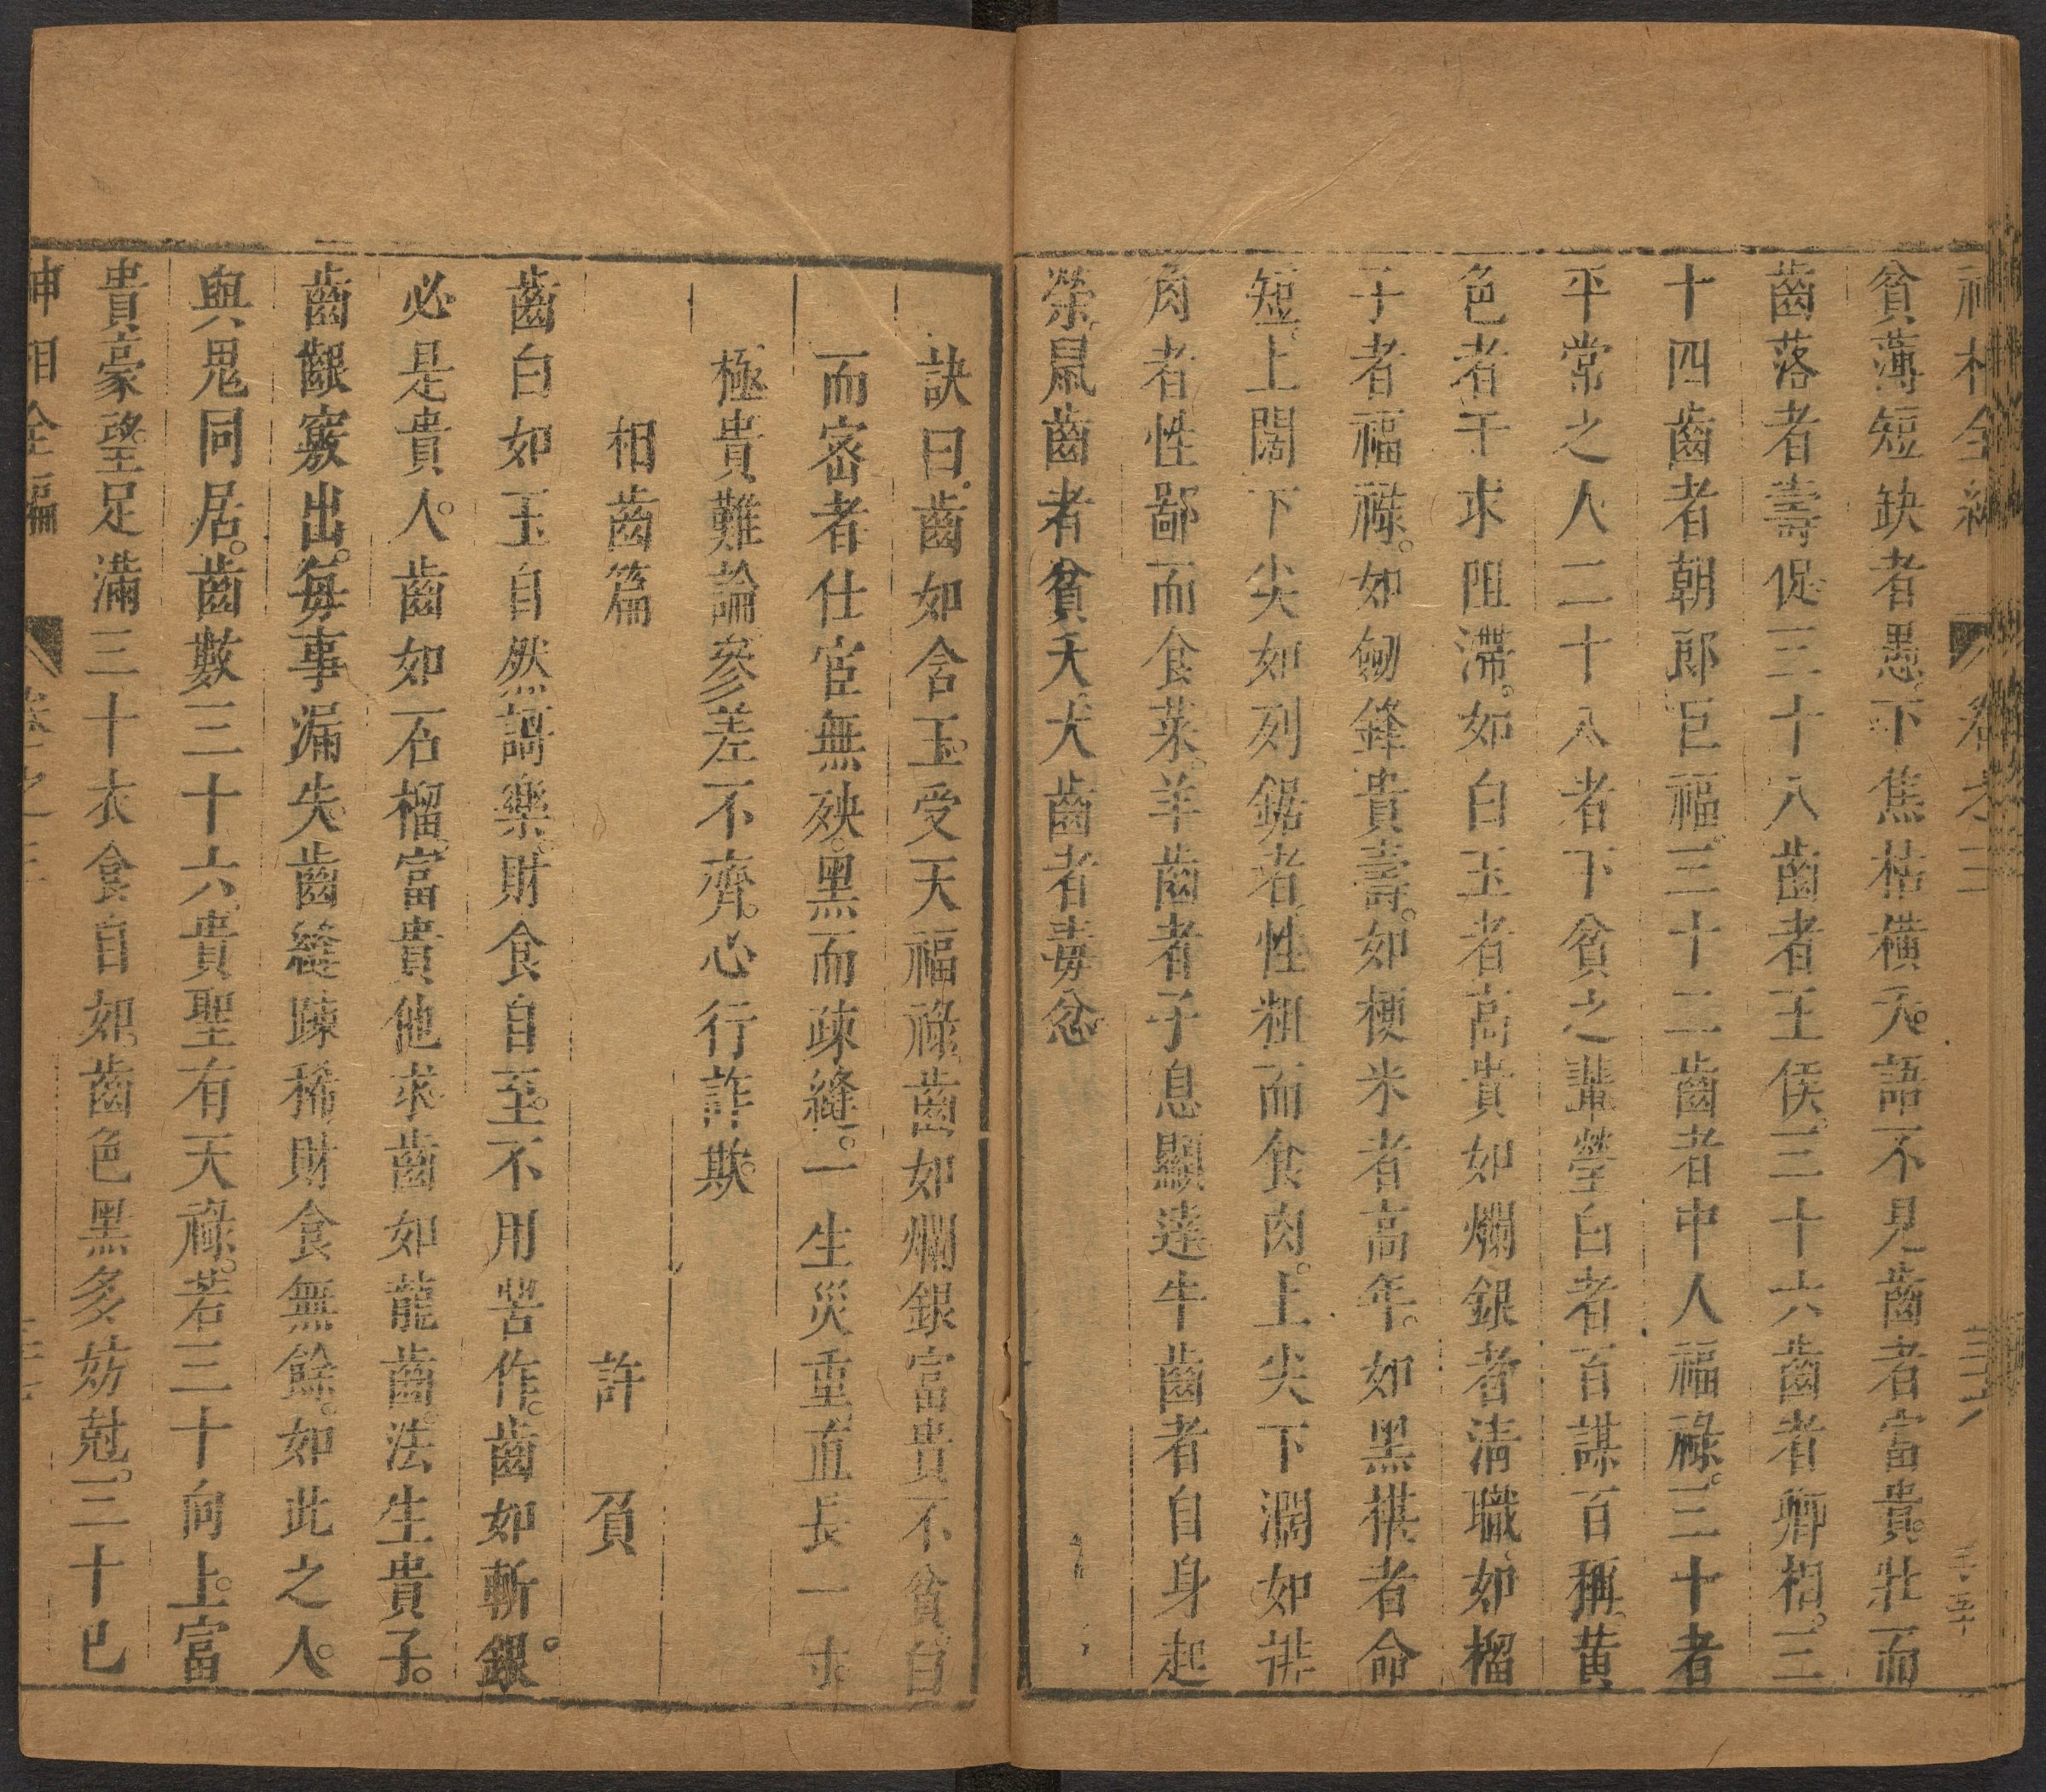 神相全編 卷之三 三十六
貧薄短缺者愚下焦枯橫夭語不見齒者富貴壯而
齒落者壽促三十八齒者王侯三十六齒者卿相三
十四齒者朝郎巨福三十二齒者中人福祿三十者
平常之人二十八者下貧之輩瑩白者百謀百稱黃
色者干求阻滯如白玉者高貴如爛銀者清職如榴
子者福祿如劒鋒貴壽如粳米者高年如黑椹者命
短上闊下尖如列鋸者性粗而食肉上尖下濶如排
角者性鄙而食菜羊齒者子息顯達牛齒者自身起
榮鼠齒者貧夭犬齒者毒忿
訣曰齒如含玉受天福祿齒如爛銀富貴不貧白
而密者仕宦無殃黑而疎縫一生災重直長一寸
極貴難論參差不齊心行詐欺
相齒篇
許 負
齒白如玉自然謌樂財食自至不用苦作齒如斬銀
必是貴人齒如石榴富貴他求齒如龍齒法生貴子
齒齦竅出每事漏失齒縫疎稀財食無餘如此之人
與鬼同居齒數三十六貴聖有天祿若三十向上富
貴豪望足滿三十衣食自如齒色黑多妨尅三十已
神相全編 卷之三